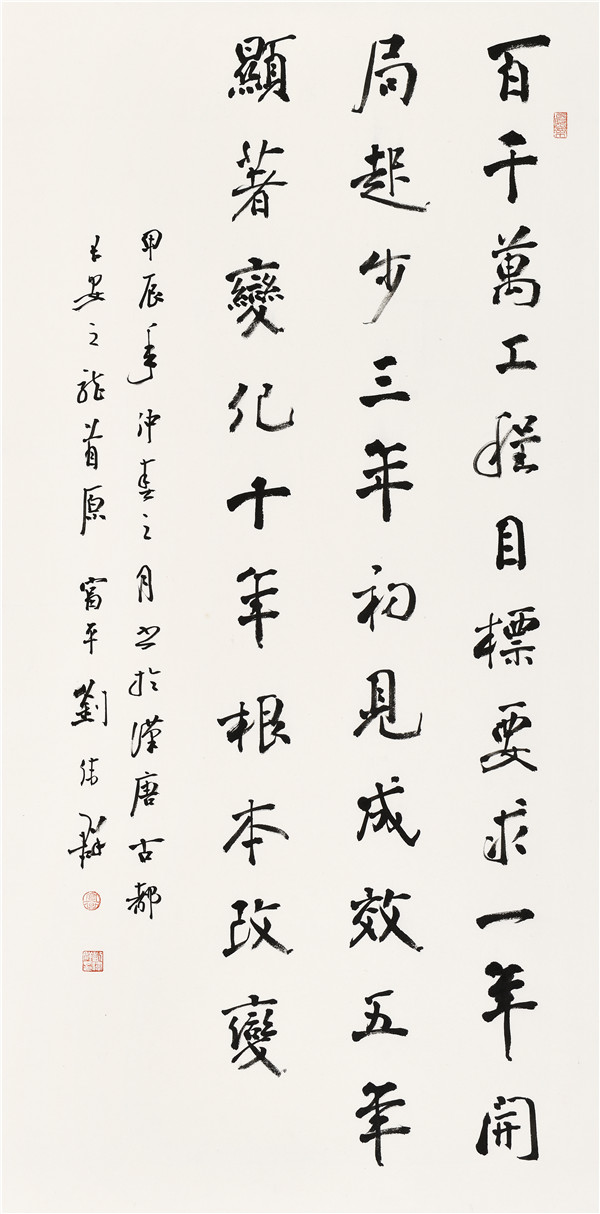 百千萬工程目標要求一年開
局起步三年初見成效五年
顯著變化十年根本改變
甲辰年仲春之月書於漢唐古都
長安之龍首原 富平劉偉群